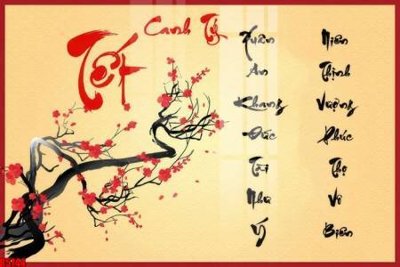 Tết
Canh Tý
Xuân
An
Khang
Đức
Tài
Như
Ý
Niên
Thịnh
Vượng
Phúc
Thọ
Vô
Biên